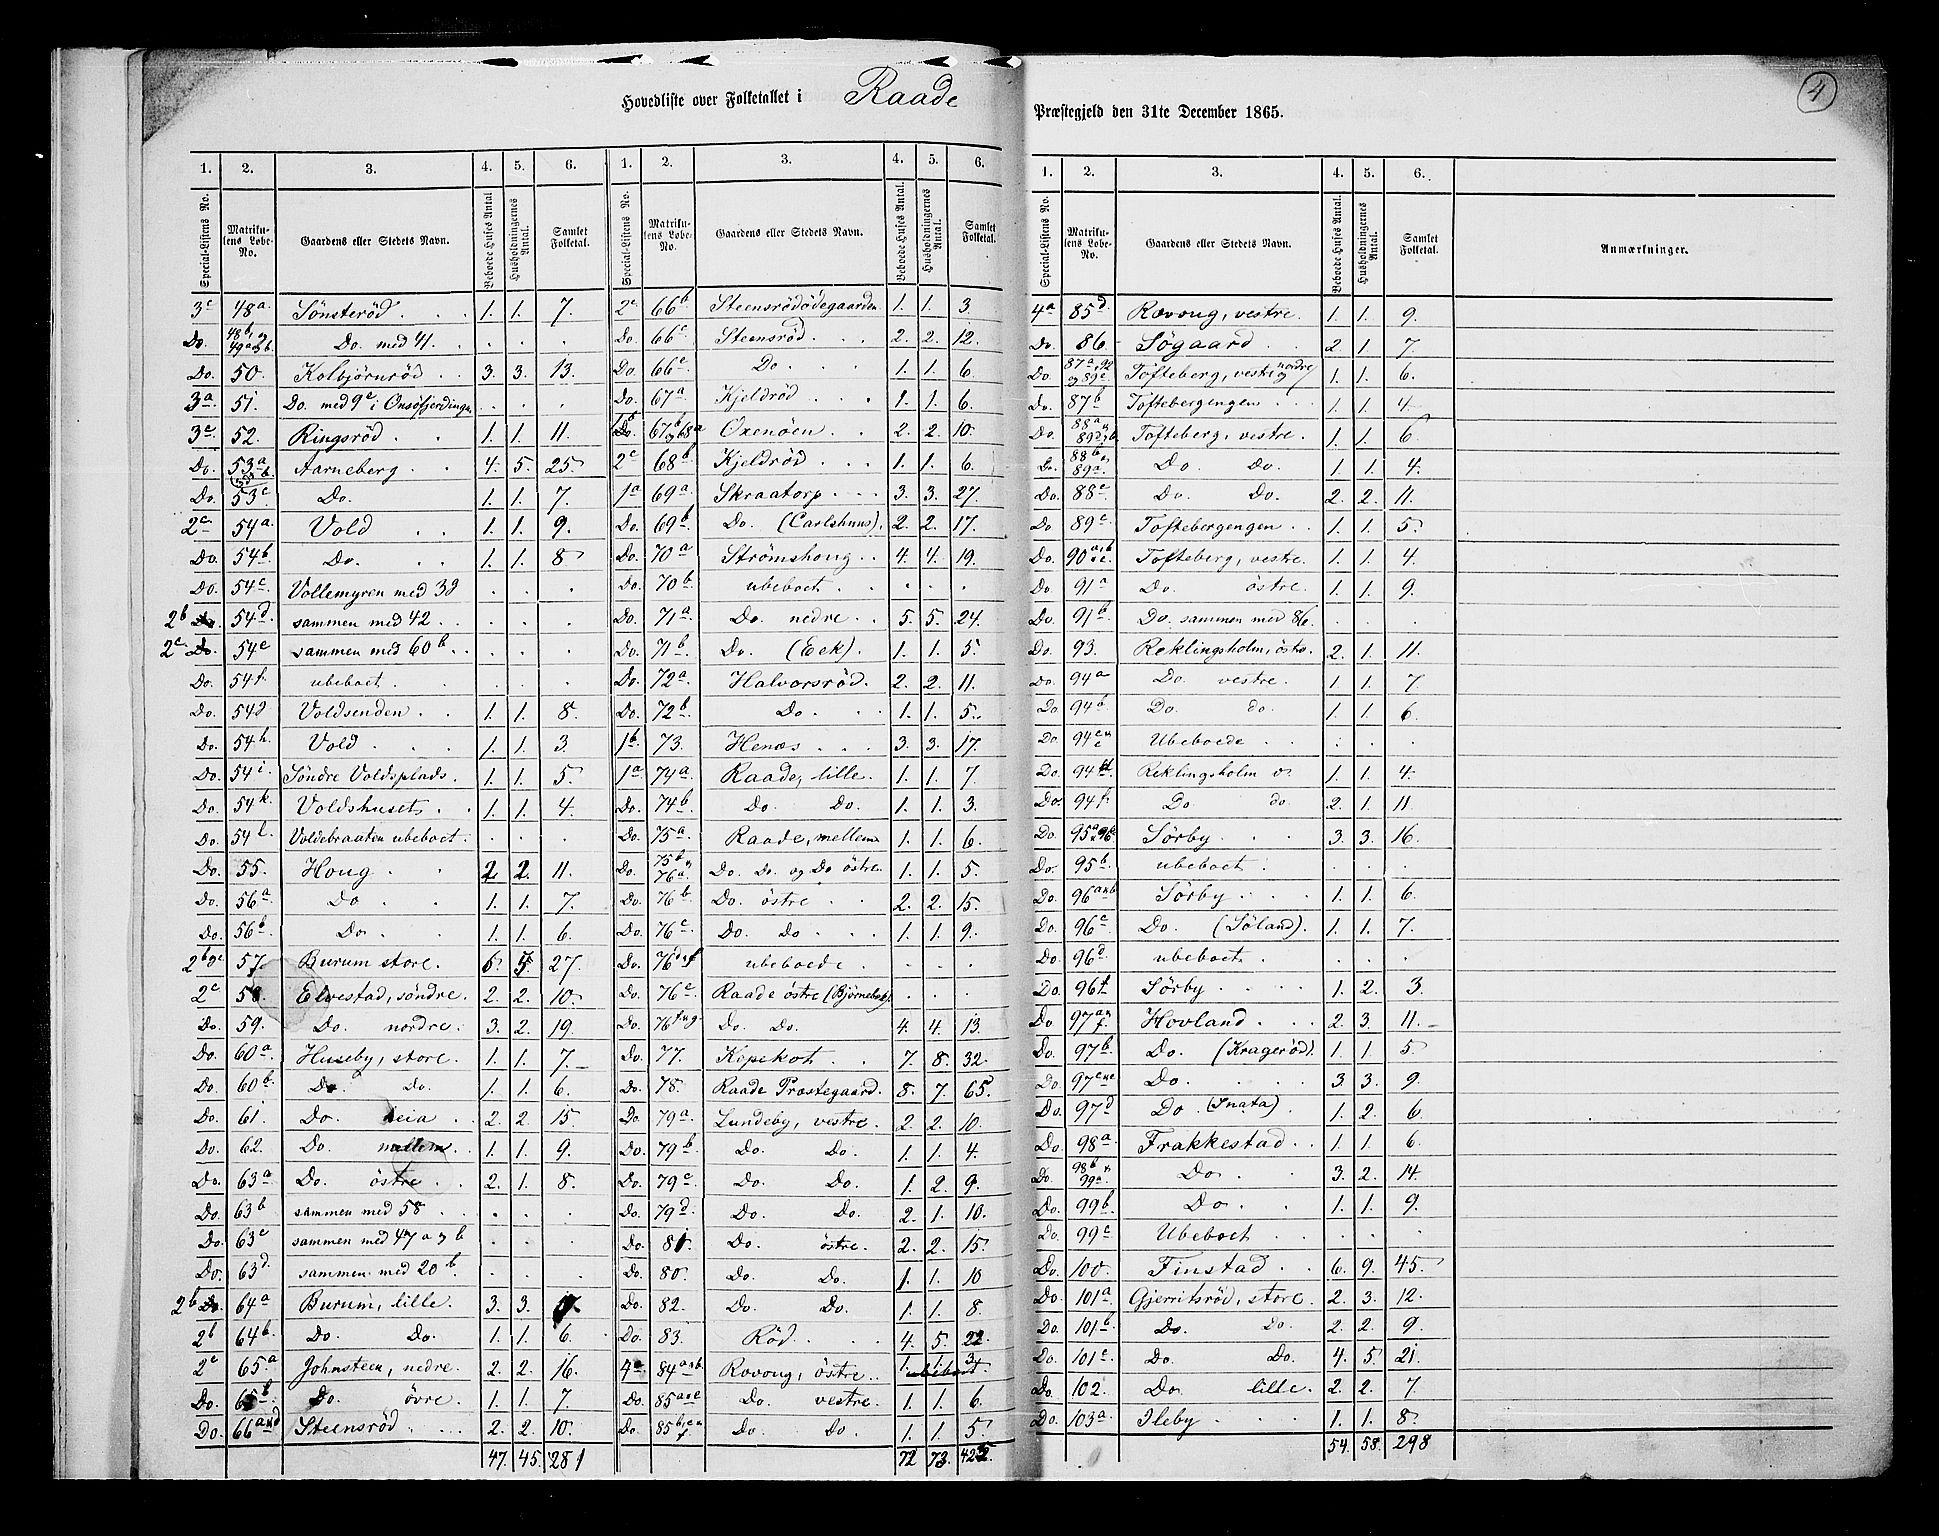 Hovedliste over Folketallet i Raade
Præstegjeld den 31te December 1865.
4
1. 2. 3. 4. 5. 6.
Special-Listens No. Matrikulens Løbe-No. Gaardens eller Stedets Navn. Beboede Huses Antal Husholdningernes Antal. Samlet Folketal.
3c 48a. Sönsteröd 1. 1. 7.
Do. 48b, 49a og b Do. med 41. . . .
Do. 50. Kolbjörnröd 3. 3. 13.
3a. 51. Do. med 9c i Onsöfjerdingen . . .
3c. 52. Ringsröd 1. 1. 11.
Do. 53a Aarneberg 4. 5. 25.
Do. 53c Do. 1. 1. 7.
2c 54a. Vold 1. 1. 9.
Do. 54b. Do. 1. 1. 8
Do. 54c Vollemyren med 38 . . .
2b 54d. sammen med 42 . . .
2c 54e sammen med 60b . . .
Do. 54f. ubeboet . . .
Do. 54g Voldsenden 1. 1. 8.
Do. 54h. Vold 1. 1. 3.
Do. 54i. Söndre Voldsplads. 1. 1. 5.
Do. 54k. Voldshuset 1. 1. 4.
Do. 54l. Voldebraaten ubeboet . . .
Do. 55. Houg 2. 2. 11.
Do. 56a Do 1. 1. 7.
Do. 56b. Do. 1. 1. 6.
57. Burum store. 27.
2c 58. Elvestad, söndre. 2. 2. 10.
Do. 59. Do. nordre. 3. 2. 19.
Do. 60a. Huseby, store. 1. 1. 7.
Do. 60b. Do. Do. 1. 1. 6.
Do. 61 Do. neia 2. 2. 15.
Do. 62. Do. mellem 1. 1. 9.
Do. 63a Do. östre 2. 1. 8.
Do. 63b sammen med 58 . . .
Do. 63c sammen med 47 a og b . . .
Do. 63d. sammen med 20b. . . .
2b 64a Burum, lille. 3. 3.
2b 64b. Do. Do. 1. 1. 6.
2c 65a Johnsteen, nedre. 2. 2. 16.
Do. 65b Do. övre. 1. 1. 7.
Do. 66a Steensröd 2. 2. 10.
47. 45. 281
1. 2. 3. 4. 5. 6.
Special-Listens No. Matrikulens Løbe-No. Gaardens eller Stedets Navn. Beboede Huses Antal. Husholdningernes Antal. Samlet Folketal.
2c 66b Steensrödödegaarden 1. 1. 3
Do. 66c Steensröd 2. 2. 12.
Do. 66e Do. 1. 1. 6.
Do. 67a Kjeldröd 1. 1. 6.
1b 67b og 68a Oxenöen 2. 2. 10.
2c 68b Kjeldröd 1. 1. 6.
1a 69a Skraatorp 3. 3. 27.
Do. 69b Do. (Carlshuus). 2. 2. 17.
Do. 70a Strömshoug 4. 4. 19.
Do. 70b. ubeboet . . .
Do. 71a Do. nedre 5. 5. 24.
Do. 71b. Do. (Eek). 1. 1. 5.
Do. 72a Halvorsröd. 2. 2. 11.
Do. 72b. Do. 1. 1. 5.
1b. 73. Henæs 3. 3. 17.
1a 74a. Raade, lille. 1. 1. 7.
Do. 74b Do. Do. 1. 1. 3.
Do. 75a Raade, mellem 1. 1. 6.
Do. 75b og 76a. Do. Do. og Do östre 1. 1. 5.
Do. 76b Do. östre 2. 2. 15.
Do. 76c Do. Do. 1. 1. 9.
Do. 76d ubeboede . . .
Do. 76e Raade östre (Björnebek) . . .
Do. 76f Do. Do. 4. 4. 13.
Do. 77. Kopskot 7. 8. 32.
Do. 78. Raade Præstegaard. 8. 7. 65.
Do 79a Lundeby, vestre. 2. 2. 10.
Do. 79b Do. Do. 1. 1. 4.
Do. 79c Do. Do. 1. 2. 9.
Do. 79d Do. Do. 2. 1. 10.
Do. 81. Do. östre. 2. 2. 15.
Do. 80. Do. Do. 1. 1. 10
Do. 82. Do. Do. 1. 1. 8.
Do. 83. Röd 4. 5. 22.
4a. 84a Rovoug, östre. ubeboet 1. 1. 3.
Do. 85a Do. vestre. 1. 1. 6.
Do. 85b Do. Do. 1. 1. 5
72 73. 425.
1. 2. 3. 4. 5. 6.
Special-Listens No. Matrikulens Løbe-No. Gaardens eller Stedets Navn. Beboede Huses Antal. Husholdningernes Antal. Samlet Folketal. Anmærkninger.
4a 85d Rovoug, vestre. 1. 1. 9.
Do. 86. Sögaard 2. 1. 7.
Do. 87a, 92 og 89e. Tofteberg, vestre og nordre 1. 1. 6.
Do. 87b Toftebergengen 1. 1. 4.
Do. 88a Tofteberg, vestre. 1. 1. 6.
Do. 88b og 89a. Do. Do. 1. 1. 4.
Do. 88c Do. Do. 2. 2. 11.
Do 89c Toftebergengen 1. 1. 5
Do. 90 Tofteberg, vestre. 1. 1. 4.
Do. 91a Do. östre. 1. 1. 9.
Do. 91b Do. sammen med 86. . . .
Do. 93. Reklingsholm, östr. 2. 1. 11.
Do. 94a Do. vestre. 1. 1. 7.
Do 94b. Do. do. 1. 1. 6.
Do. 94c Ubeboede . . .
Do. 94d Reklingsholm v. 1. 1. 4.
Do. 94f. Do do. 2. 1. 11
Do. 95a Sörby 3. 3. 16.
Do. 95b. ubeboet . . .
Do. 96a Sörby 1. 1. 6.
Do. 96c Do. (Söland). 1. 1. 7.
Do. 96d ubeboet . . .
Do. 96f Sörby 1. 2. 3.
Do. 97a Hovland 2. 3. 11.
Do. 97b Do. (Krageröd). 1. 1. 5
Do. 97c Do. 3. 3. 9.
Do. 97d Do. (Snata). 1. 2. 6.
Do. 98a Frakkestad 1. 1. 6.
Do. 98b og 99a. Do. 3. 2. 14.
Do. 99b Do. 1. 1. 9.
Do. 99c Ubeboet . . .
Do. 100. Finstad 6. 9. 45.
Do. 101a. Gjerritsröd, store. 2. 3. 12.
Do. 101b Do. Do. 2. 2. 9.
Do. 101c Do. Do. 4. 5. 21.
Do. 102. Do. lille. 2. 2. 7.
Do. 103a. Ileby 1. 1. 8.
54. 58. 298